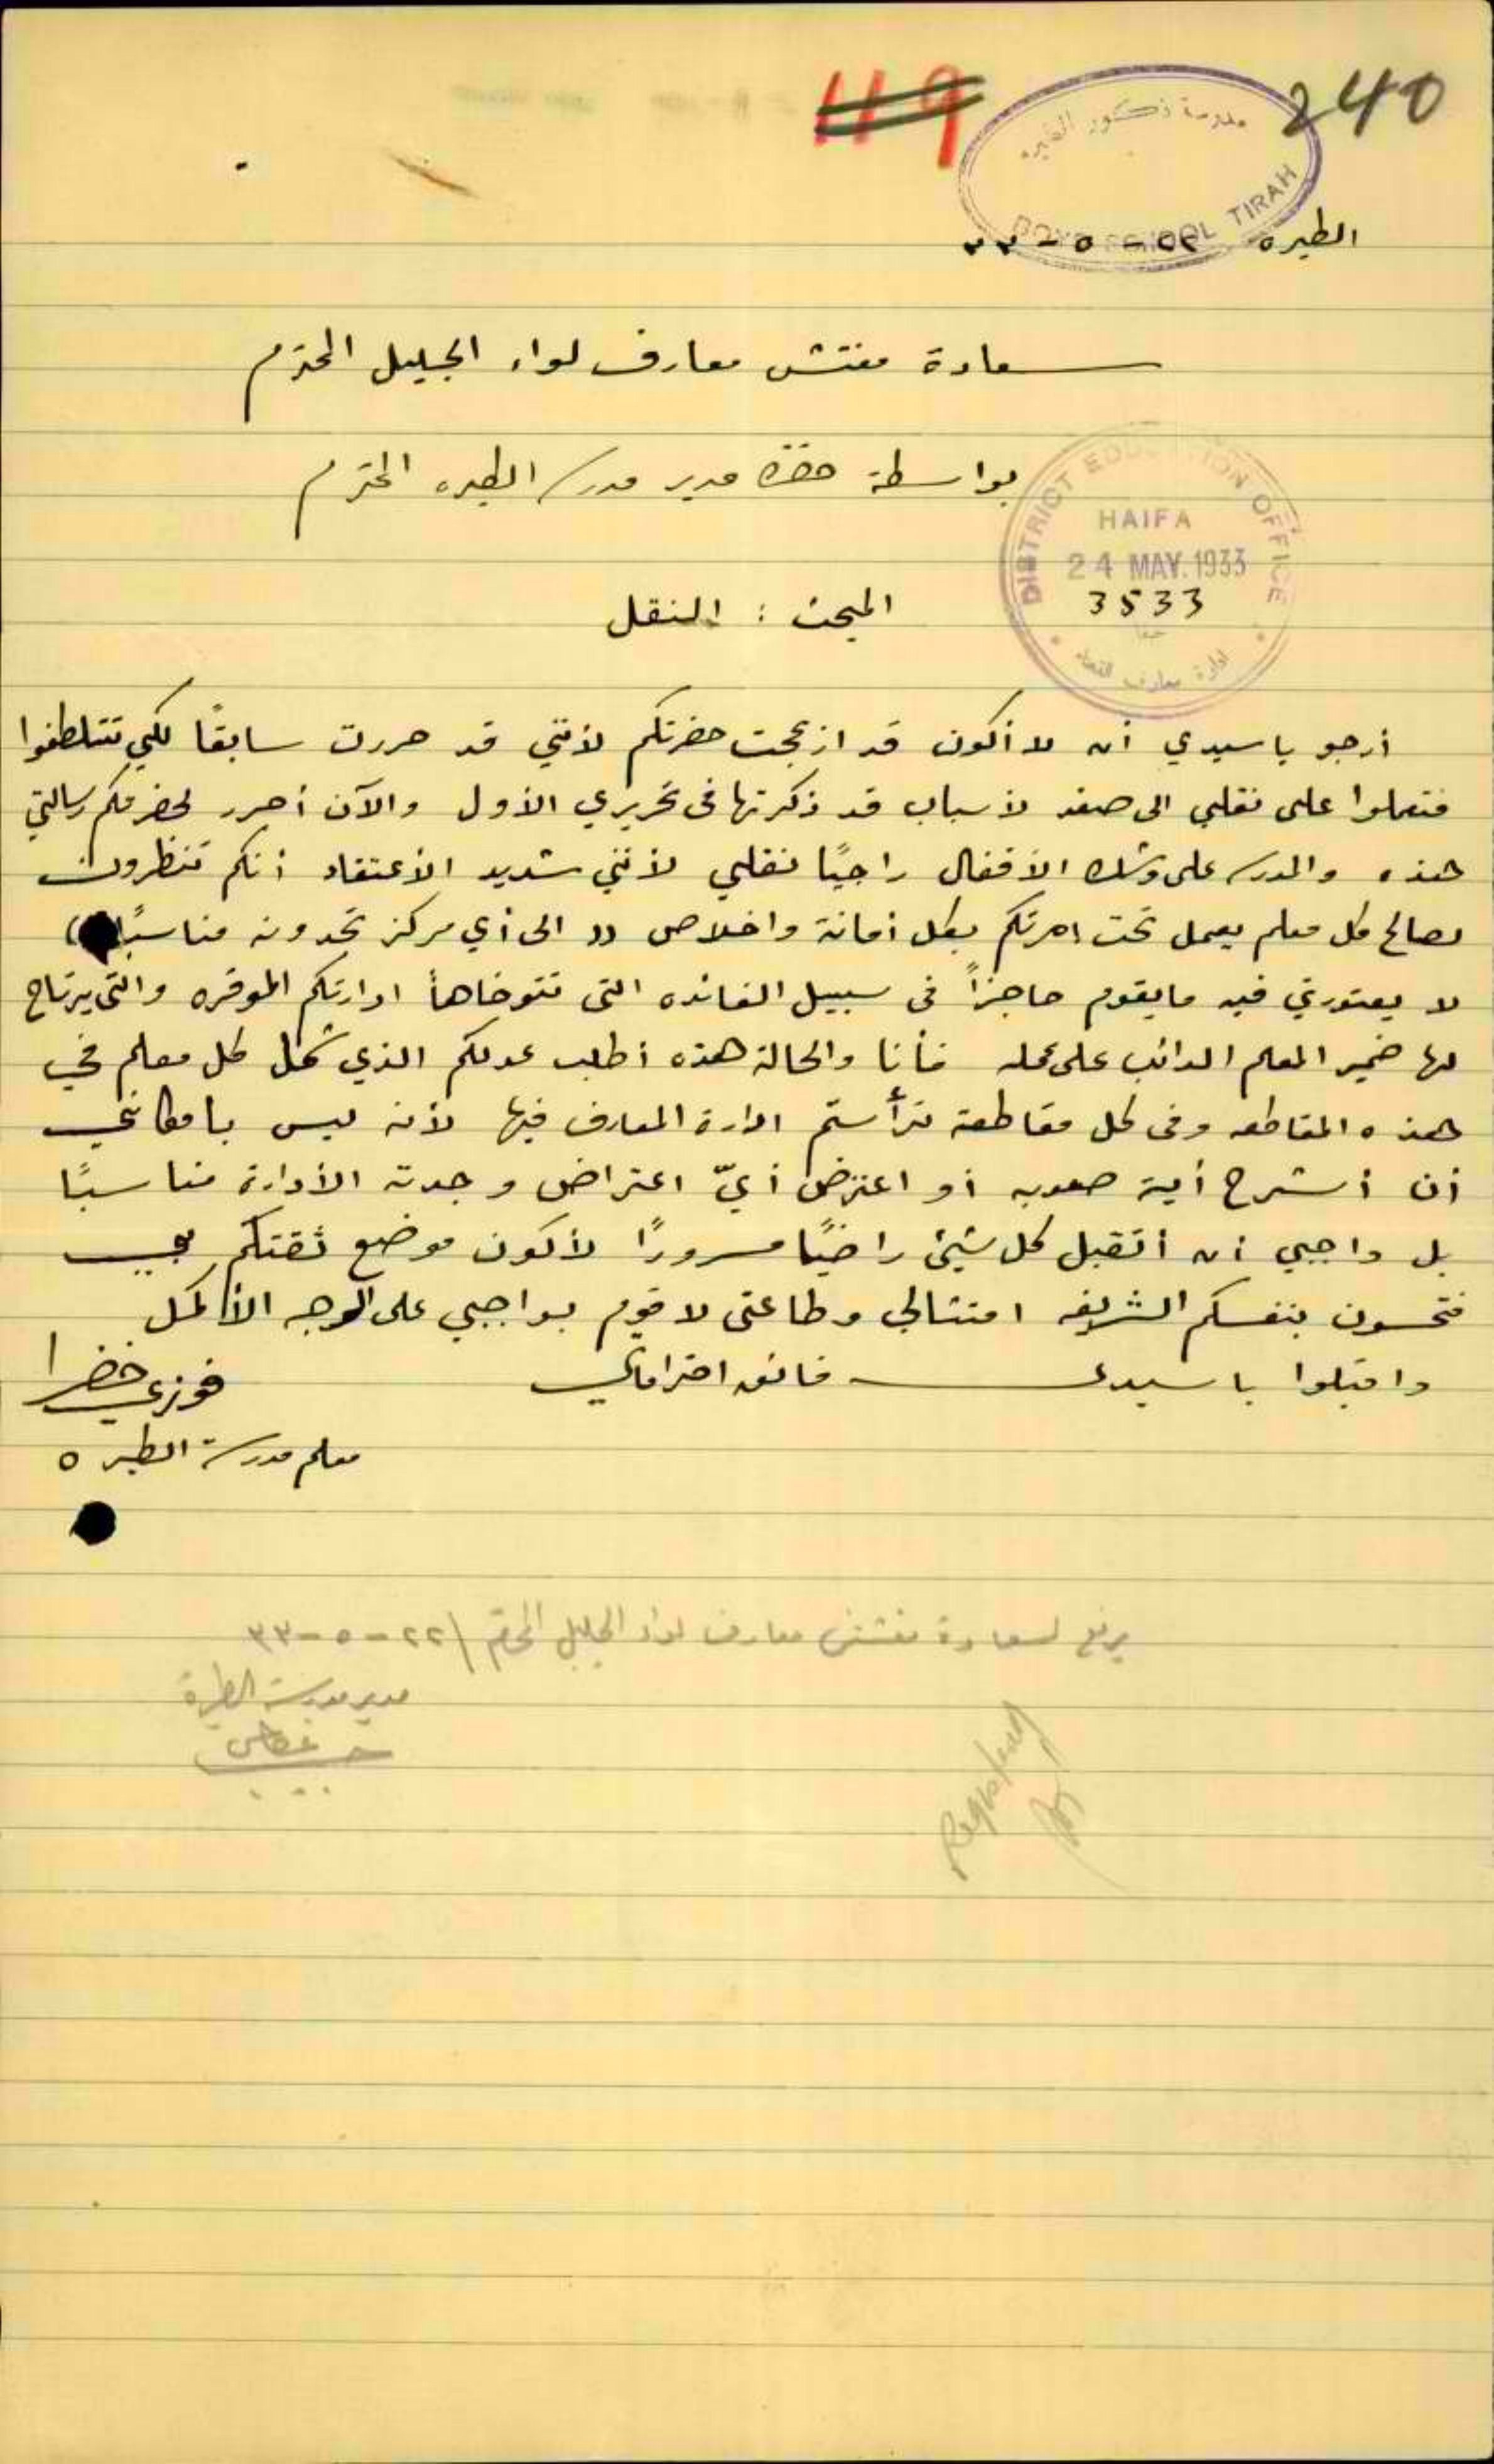 119
240
مدرسة ذكور الطيره
BOYS SCHOOL TIRAH
الطيره ٢٢ - ٥ - ٣٣
سعادة مفتش معارف لواء الجليل المحترم
بواسطة حضرة مدير مدرسة الطيره المحترم
DISTRICT EDUCATION OFFICE
HAIFA
24 MAY. 1933
3533
ادارة معارف
المبحث : النقل
أرجو يا سيدي أن لا أكون قد ازعجت حضرتكم لأنني قد حررت سابقًا لكي تتلطفوا
فتعملوا على نقلي الى صفد لأسباب قد ذكرتها في تحريري الأول والآن أحرر لحضرتكم رسالتي
هذه والمدرسه على وشك الأقفال راجيًا نقلي لأنني شديد الأعتقاد أنكم تنظرون
لصالح كل معلم يعمل تحت امرتكم بكل أمانة واخلاص (( الى أي مركز تجدونه مناسبًا ))
لا يعتورني فيه مايقوم حاجزاً في سبيل الفائده التي تتوخاها ادارتكم الموقره والتي يرتاح
لها ضمير المعلم الدائب على عمله فأنا والحالة هذه أطلب عدلكم الذي شمل كل معلم في
هذه المقاطعه وفي كل مقاطعة ترأستم ادارة المعارف فيها لأنه ليس بامكاني
أن أشرح أية صعوبه أو اعترض أيّ اعتراض وجدته الأدارة مناسبًا
بل واجبي أن أتقبل كل شيئ راضيًا مسرورًا لأكون موضع ثقتكم بي
فتحسون بنفسكم الشريفه امتثالي وطاعتي لاقوم بواجبي على الوجه الأكمل
واقبلوا يا سيدي فائق احتراماتي
فوزي خضرا
معلم مدرسة الطيره
يرفع لسعادة مفتش معارف لواء الجليل المحترم / ٢٢ - ٥ - ٣٣
مدير مدرسة الطيرة